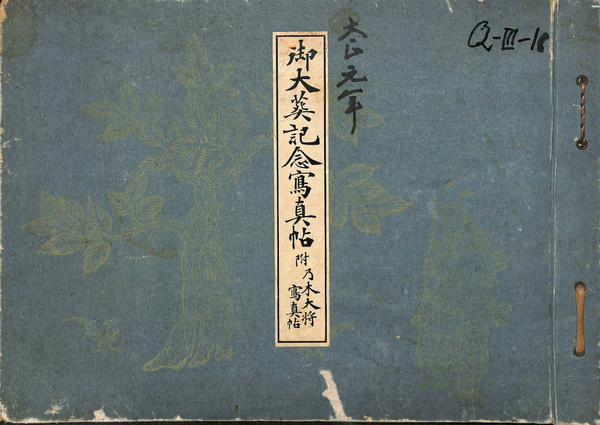 御大葬記念寫真帖
附乃木大将
寫真帖
大正元年
Q-III-18